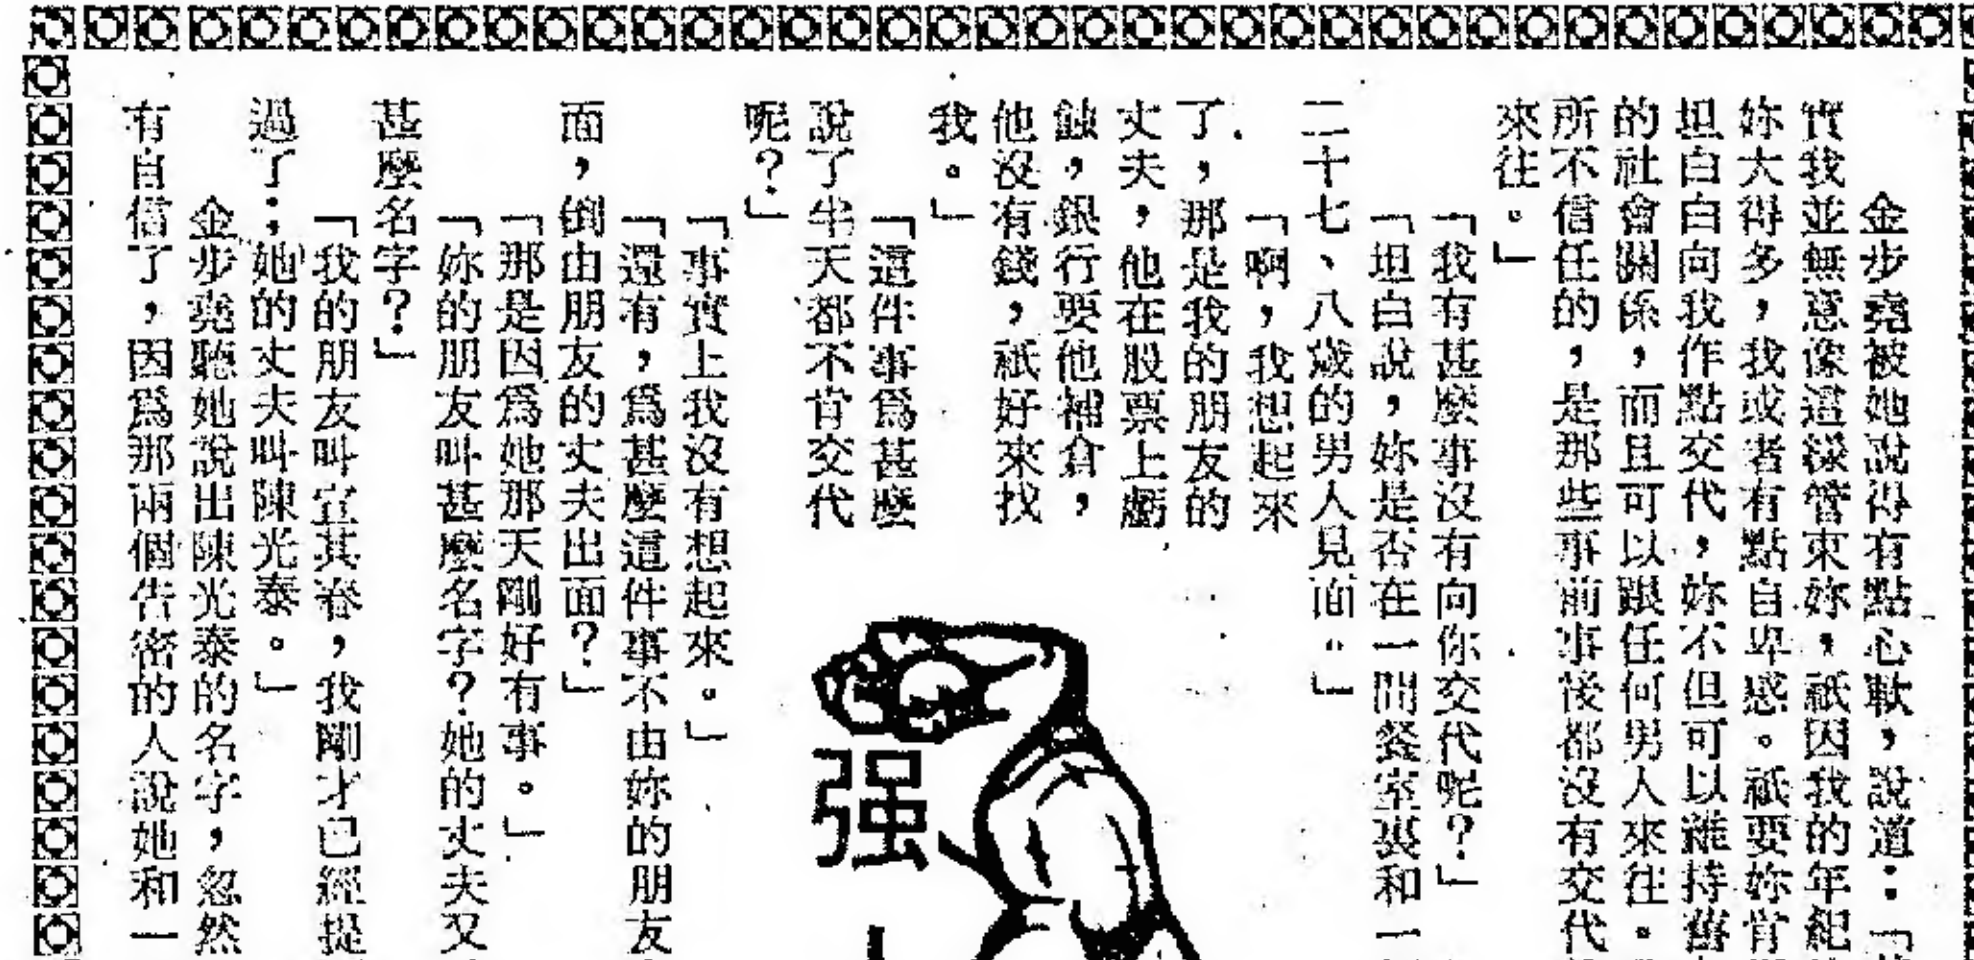 金步堯被她說得有點心軟，說道：「
實我並無意像這樣管束妳，祇因我的年紀
妳大得多，我或者有點自卑感。祇要妳肯
坦白白向我作點交代，妳不但可以維持舊
的社會關係，而且可以跟任何男人來往。
所不信任的，是那些事前事後都沒有交代
來往。」
「我有甚麼事沒有向你交代呢？」
「坦白說，妳是否在一間餐室裏和一
二十七、八歲的男人見面。」
「啊，我想起來
了，那是我的朋友的
丈夫，他在股票上虧
蝕，銀行要他補倉，
他沒有錢，祇好來找
我。」
「這件事爲甚麼
說了半天都不肯交代
呢？」
「事實上我沒有想起來。」
「還有，爲甚麼這件事不由妳的朋友
面，倒由朋友的丈夫出面？」
「那是因爲她那天剛好有事。」
「妳的朋友叫甚麼名字？她的丈夫又
甚麼名字？」
「我的朋友叫宣其春，我剛才已經提
過了；她的丈夫叫陳光泰。」
金步堯聽她說出陳光泰的名字，忽然
有自信了，因爲那兩個告密的人說她和一
强